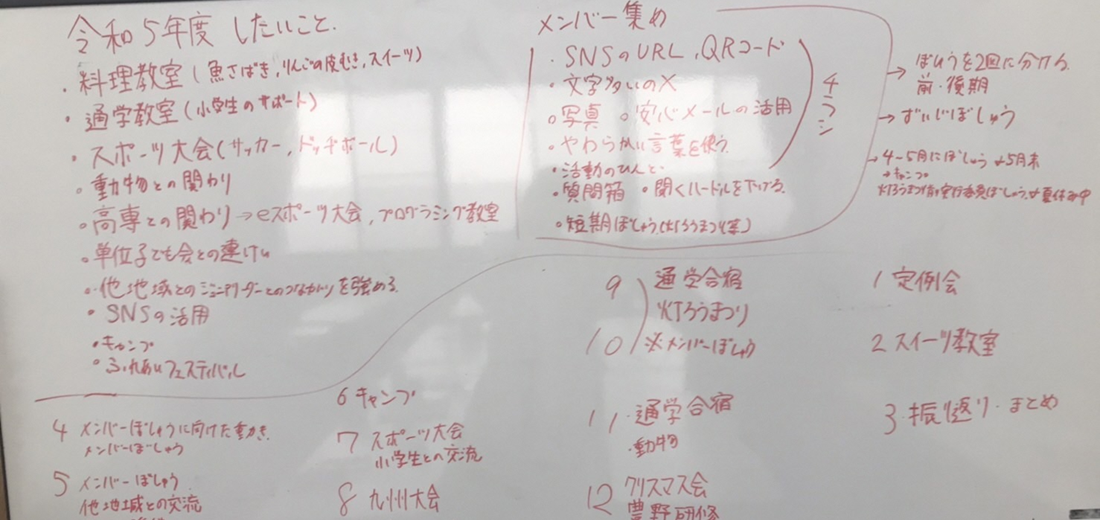 令和5年度 したいこと
・料理教室 (魚さばき, りんごの皮むき, スイーツ)
・通学教室 (小学生のサポート)
・スポーツ大会 (サッカー, ドッチボール)
・動物との関わり
・高専との関わり→eスポーツ大会, プログラミング教室
・単位子ども会との連けい
・他地域とのジュニアリーダーとのつながりを強める
・SNSの活用
・キャンプ
・ふれあいフェスティバル
メンバー集め
・SNSのURL, QRコード
・文字多いの×
・写真 ・安心メールの活用
・やわらかい言葉を使う
・活動のひんど
・質問箱 ・聞くハードルを下げる
・短期ぼしゅう(灯ろうまつり等)
チラシ
→ぼしゅうを2回に分ける
前・後期
→ずいじぼしゅう
→4〜5月にぼしゅう→5月末
→キャンプ
4 メンバーぼしゅうに向けた動き
メンバーぼしゅう
5 メンバーぼしゅう
他地域との交流
6 キャンプ
7 スポーツ大会
小学生との交流
8 九州大会
9 通学合宿
灯ろうまつり
10 ※メンバーぼしゅう
11 ・通学合宿
・動物
12 クリスマス会
豊野研修
1 定例会
2 スイーツ教室
3 振り返り・まとめ